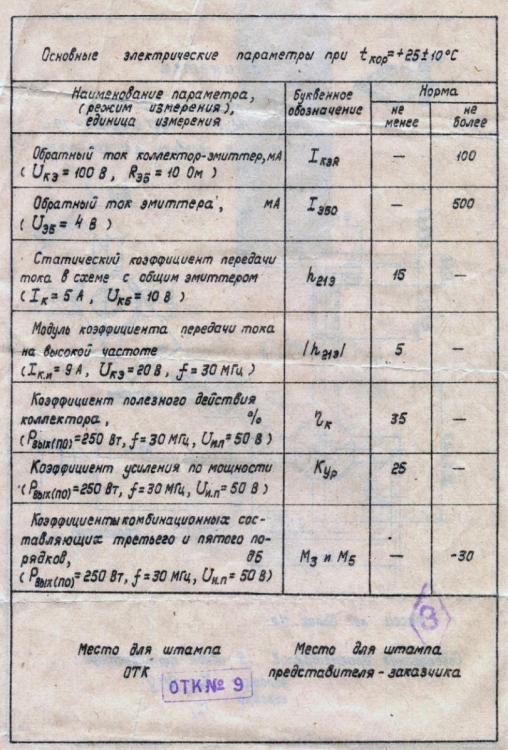 Основные электрические параметры при tкор=+25±10°С
Наименование параметра, (режим измерения), единица измерения
Буквенное обозначение
Норма
не менее
не более
Обратный ток коллектор-эмиттер, мА
(UКЭ=100 В, RЭБ=10 Ом)
IКЭR
—
100
Обратный ток эмиттера, мА
(UЭБ=4 В)
IЭБО
—
500
Статический коэффициент передачи
тока в схеме с общим эмиттером
(IК=5 А, UКБ=10 В)
h21Э
15
—
Модуль коэффициента передачи тока
на высокой частоте
(IК.и=9 А, UКЭ=20 В, f=30 МГц)
|h21Э|
5
—
Коэффициент полезного действия
коллектора, %
(Рвых(ПО)=250 Вт, f=30 МГц, Uи.п=50 В)
ηк
35
—
Коэффициент усиления по мощности
(Рвых(ПО)=250 Вт, f=30 МГц, Uи.п=50 В)
Кур
25
—
Коэффициенты комбинационных сос-
тавляющих третьего и пятого по-
рядков, дБ
(Рвых(ПО)=250 Вт, f=30 МГц, Uи.п=50 В)
М3 и М5
—
-30
Место для штампа
ОТК
ОТК № 9
Место для штампа
представителя-заказчика